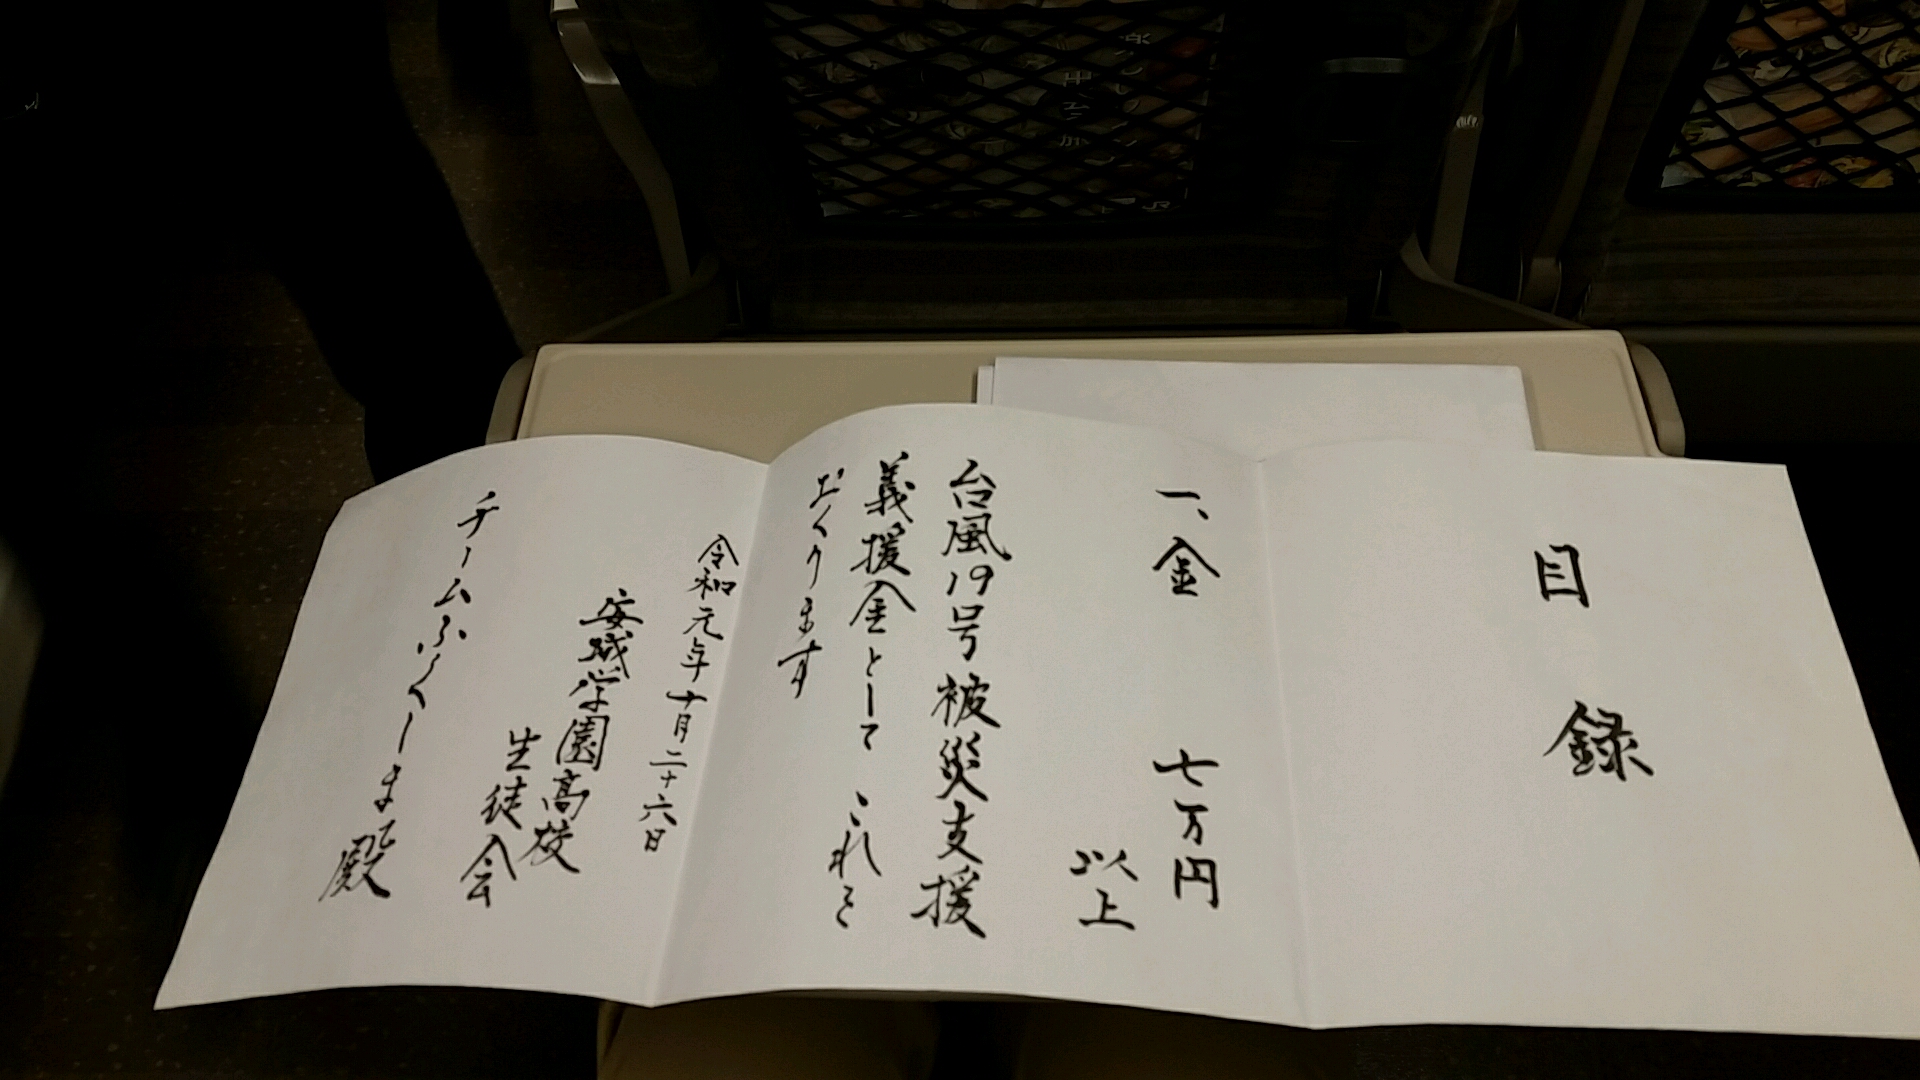 目録
一、金 七万円
以上
台風19号被災支援
義援金として これを
おくります
令和元年十月二十六日
安城学園高校
生徒会
チームふくしま殿